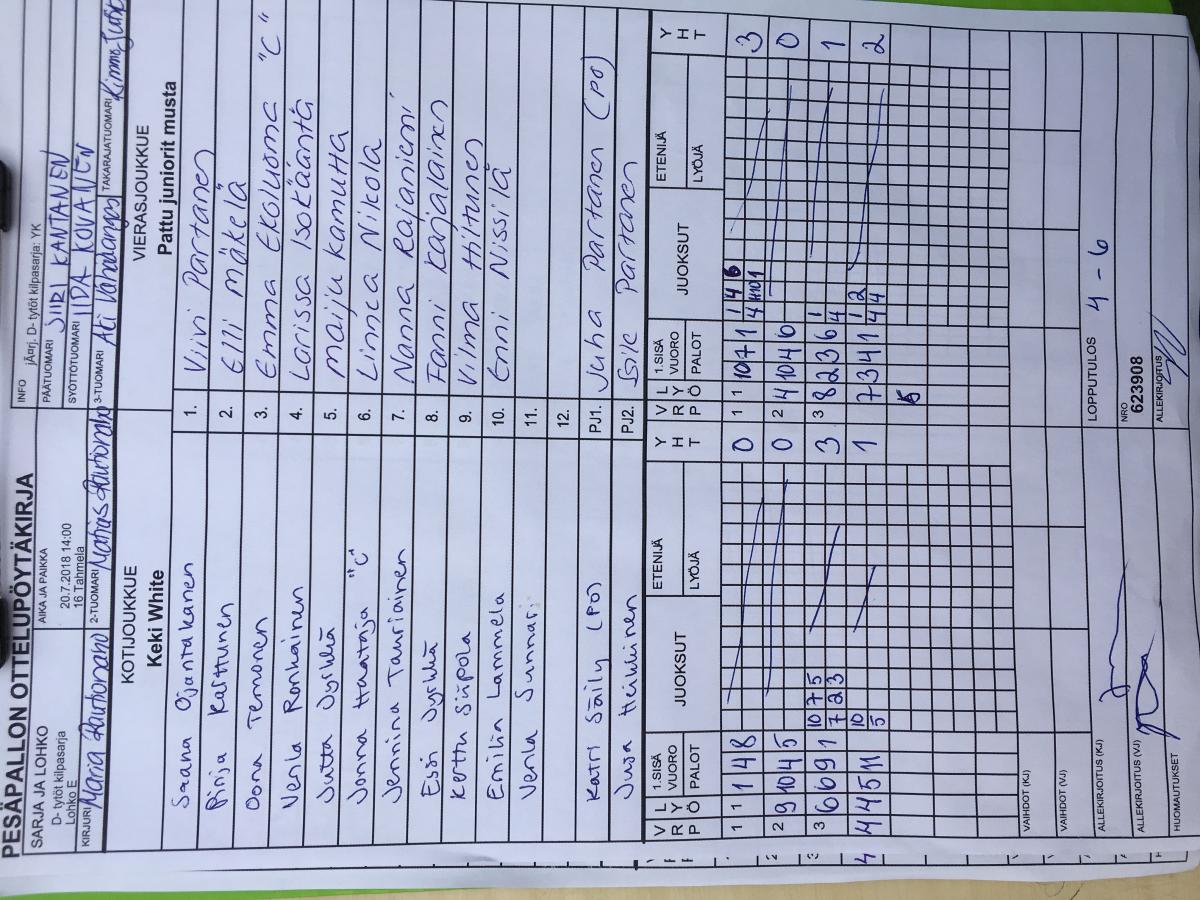 PESÄPALLON OTTELUPÖYTÄKIRJA
SARJA JA LOHKO
D- tytöt kilpasarja
Lohko E
AIKA JA PAIKKA
20.7.2018 14:00
16 Tahmela
INFO jÃ¤rj. D- tytöt kilpasarja: YK
PÄÄTUOMARI SIIRI KANTANEN
SYÖTTÖTUOMARI IIDA KOVANEN
KIRJURI Maria Rautionaho 2-TUOMARI Matias Rautionaho 3-TUOMARI TAKARAJATUOMARI
KOTIJOUKKUE
Keki White
VIERASJOUKKUE
Pattu juniorit musta
Saana Ojantakanen 1. Viivi Partanen
Pinja Karttunen 2. Elli Mäkelä
Oona Temonen 3. Emma Ekoluoma "C"
Venla Ronkainen 4. Larissa Isokääntä
Jutta Jyrkkä 5. Maiju Kamutta
Jonna Haataja "C" 6. Linnea Nikola
Jennina Tauriainen 7. Nanna Rajaniemi
Essi Jyrkkä 8. Fanni Karjalainen
Kerttu Siipola 9. Vilma Hiltunen
Emilia Lammela 10. Enni Nissilä
Venla Sunnari 11.
12.
Katri Säily (PO) PJ1. Juha Partanen (PO)
Jusa Heikkinen PJ2. Partanen
V R P L Y Ö 1.SISÄ VUORO PALOT JUOKSUT ETENIJÄ LYÖJÄ Y H T V R P L Y Ö 1.SISÄ VUORO PALOT JUOKSUT ETENIJÄ LYÖJÄ Y H T
1 1 1 4 8 0 1 1 10 7 1 3
2 9 10 4 5 0 2 4 10 4 6 0
3 6 6 9 1 10 7 5 7 2 3 3 3 8 2 3 6 1 4 1
4 4 5 11 10 5 1 7 3 4 1 1 2 4 4 2
VAIHDOT (KJ)
VAIHDOT (VJ)
ALLEKIRJOITUS (KJ) LOPPUTULOS 4 - 6
ALLEKIRJOITUS (VJ) NRO 623908
HUOMAUTUKSET ALLEKIRJOITUS